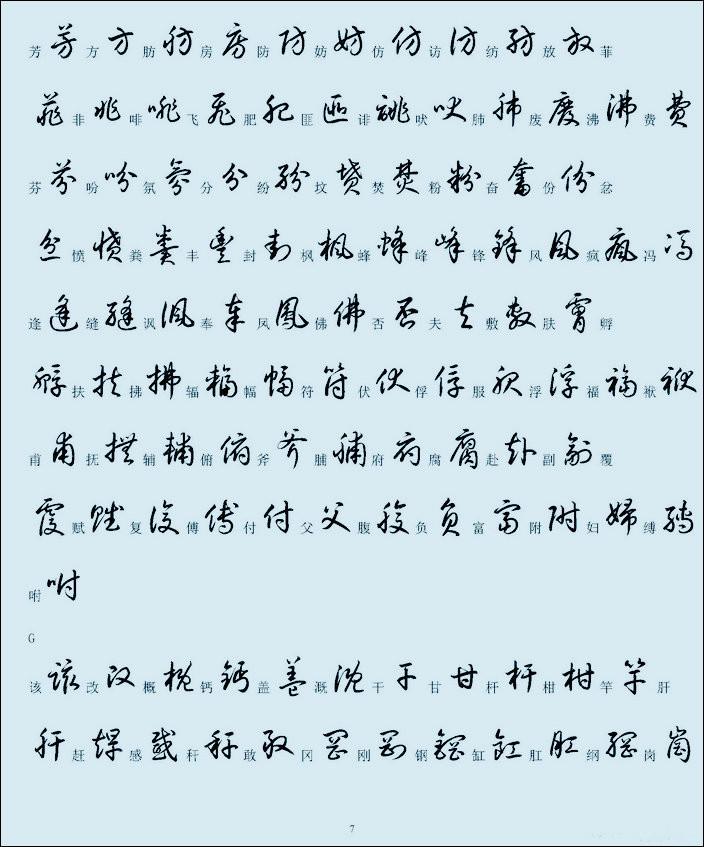 芳 芳 方 方 肪 肪 房 房 防 防 妨 妨 仿 仿 访 訪 纺 紡 放 放 菲
菲 非 非 啡 啡 飞 飛 肥 肥 匪 匪 诽 誹 吠 吠 肺 肺 废 廢 沸 沸 费 費
芬 芬 吩 吩 氛 氛 分 分 纷 紛 坟 墳 焚 焚 粉 粉 奋 奮 份 份 忿
忿 愤 憤 粪 糞 丰 豐 封 封 枫 楓 蜂 蜂 峰 峰 锋 鋒 风 風 疯 瘋 冯 馮
逢 逢 缝 縫 讽 諷 奉 奉 凤 鳳 佛 佛 否 否 夫 夫 敷 敷 肤 膚 孵
孵 扶 扶 拂 拂 辐 輻 幅 幅 符 符 伏 伏 俘 俘 服 服 浮 浮 福 福 袱 袱
甫 甫 抚 撫 辅 輔 俯 俯 斧 斧 脯 脯 府 府 腐 腐 赴 赴 副 副 覆
覆 赋 賦 复 復 傅 傅 付 付 父 父 腹 腹 负 負 富 富 附 附 妇 婦 缚 縛
咐 咐
G
该 該 改 改 概 概 钙 鈣 盖 蓋 溉 溉 干 干 甘 甘 杆 杆 柑 柑 竿 竿 肝
肝 赶 趕 感 感 秆 秆 敢 敢 冈 岡 刚 剛 钢 鋼 缸 缸 肛 肛 纲 綱 岗 崗
7